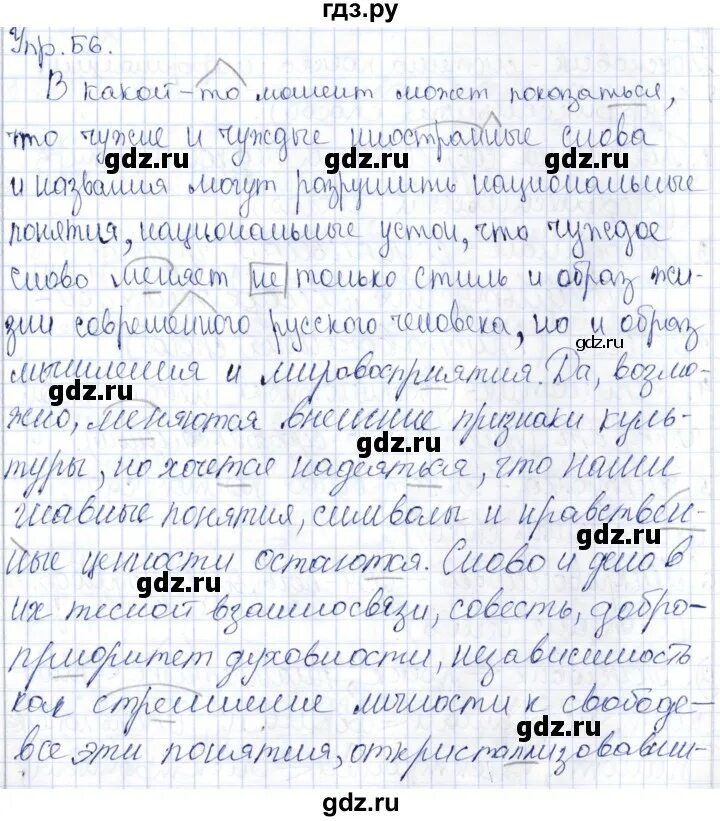 гдз.ру
Упр. 56.
В какой-то момент может показаться,
что чужие и чуждые иностранные слова
gdz.ru gdz.ru
и названия могут разрушить национальные
понятия, национальные устои, что чуждое
слово меняет не только стиль и образ жи-
зни современного русского человека, но и образ
gdz.ru
мышления и мировосприятия. Да, возмо-
gdz.ru
жно, меняются внешние признаки куль-
gdz.ru
туры, но хочется надеяться, что наши
главные понятия, символы и нравствен-
ные ценности остаются. Слово и дело в
gdz.ru
их тесной взаимосвязи, совесть, добро-
приоритет духовности, независимость
как стремление личности к свободе-
gdz.ru gdz.ru
все эти понятия, откристаллизовавши-
gdz.ru